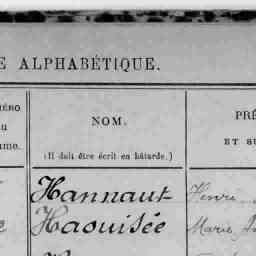 E ALPHABÉTIQUE.
MÉRO NOM. PRÉ
du
(Il doit être écrit en bâtarde.) ET SU
ume.
Hannaut Henri
Haouisée Marie